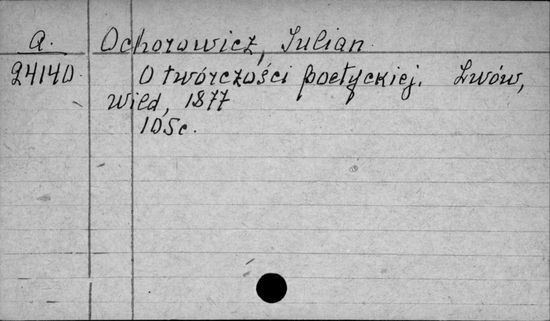 a. Ochorowicz, Julian.
24140. O twórczości poetyckiej. Lwów,
Wied, 1877
105c.